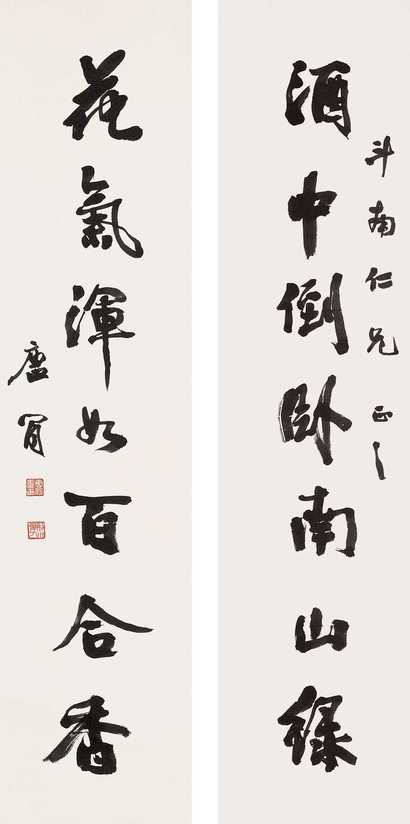 斗南仁兄正之
酒中倒卧南山绿
花氣渾如百合香